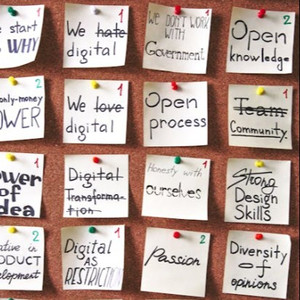 start
WHY
1
We hate
digital
1
We DON'T WORK
WITH
Government
1
Open
knowledge
2
only-money
POWER
2
We love
digital
1
Open
process
Team
Community
1
Power
of
Idea
1
Digital
Transforma-
tion
Honesty with
ourselves
1
Strong
Design
Skills
1
PRODUCT
2
Digital
AS
RESTRICTION
1
Passion
Diversity
of
opinions
2